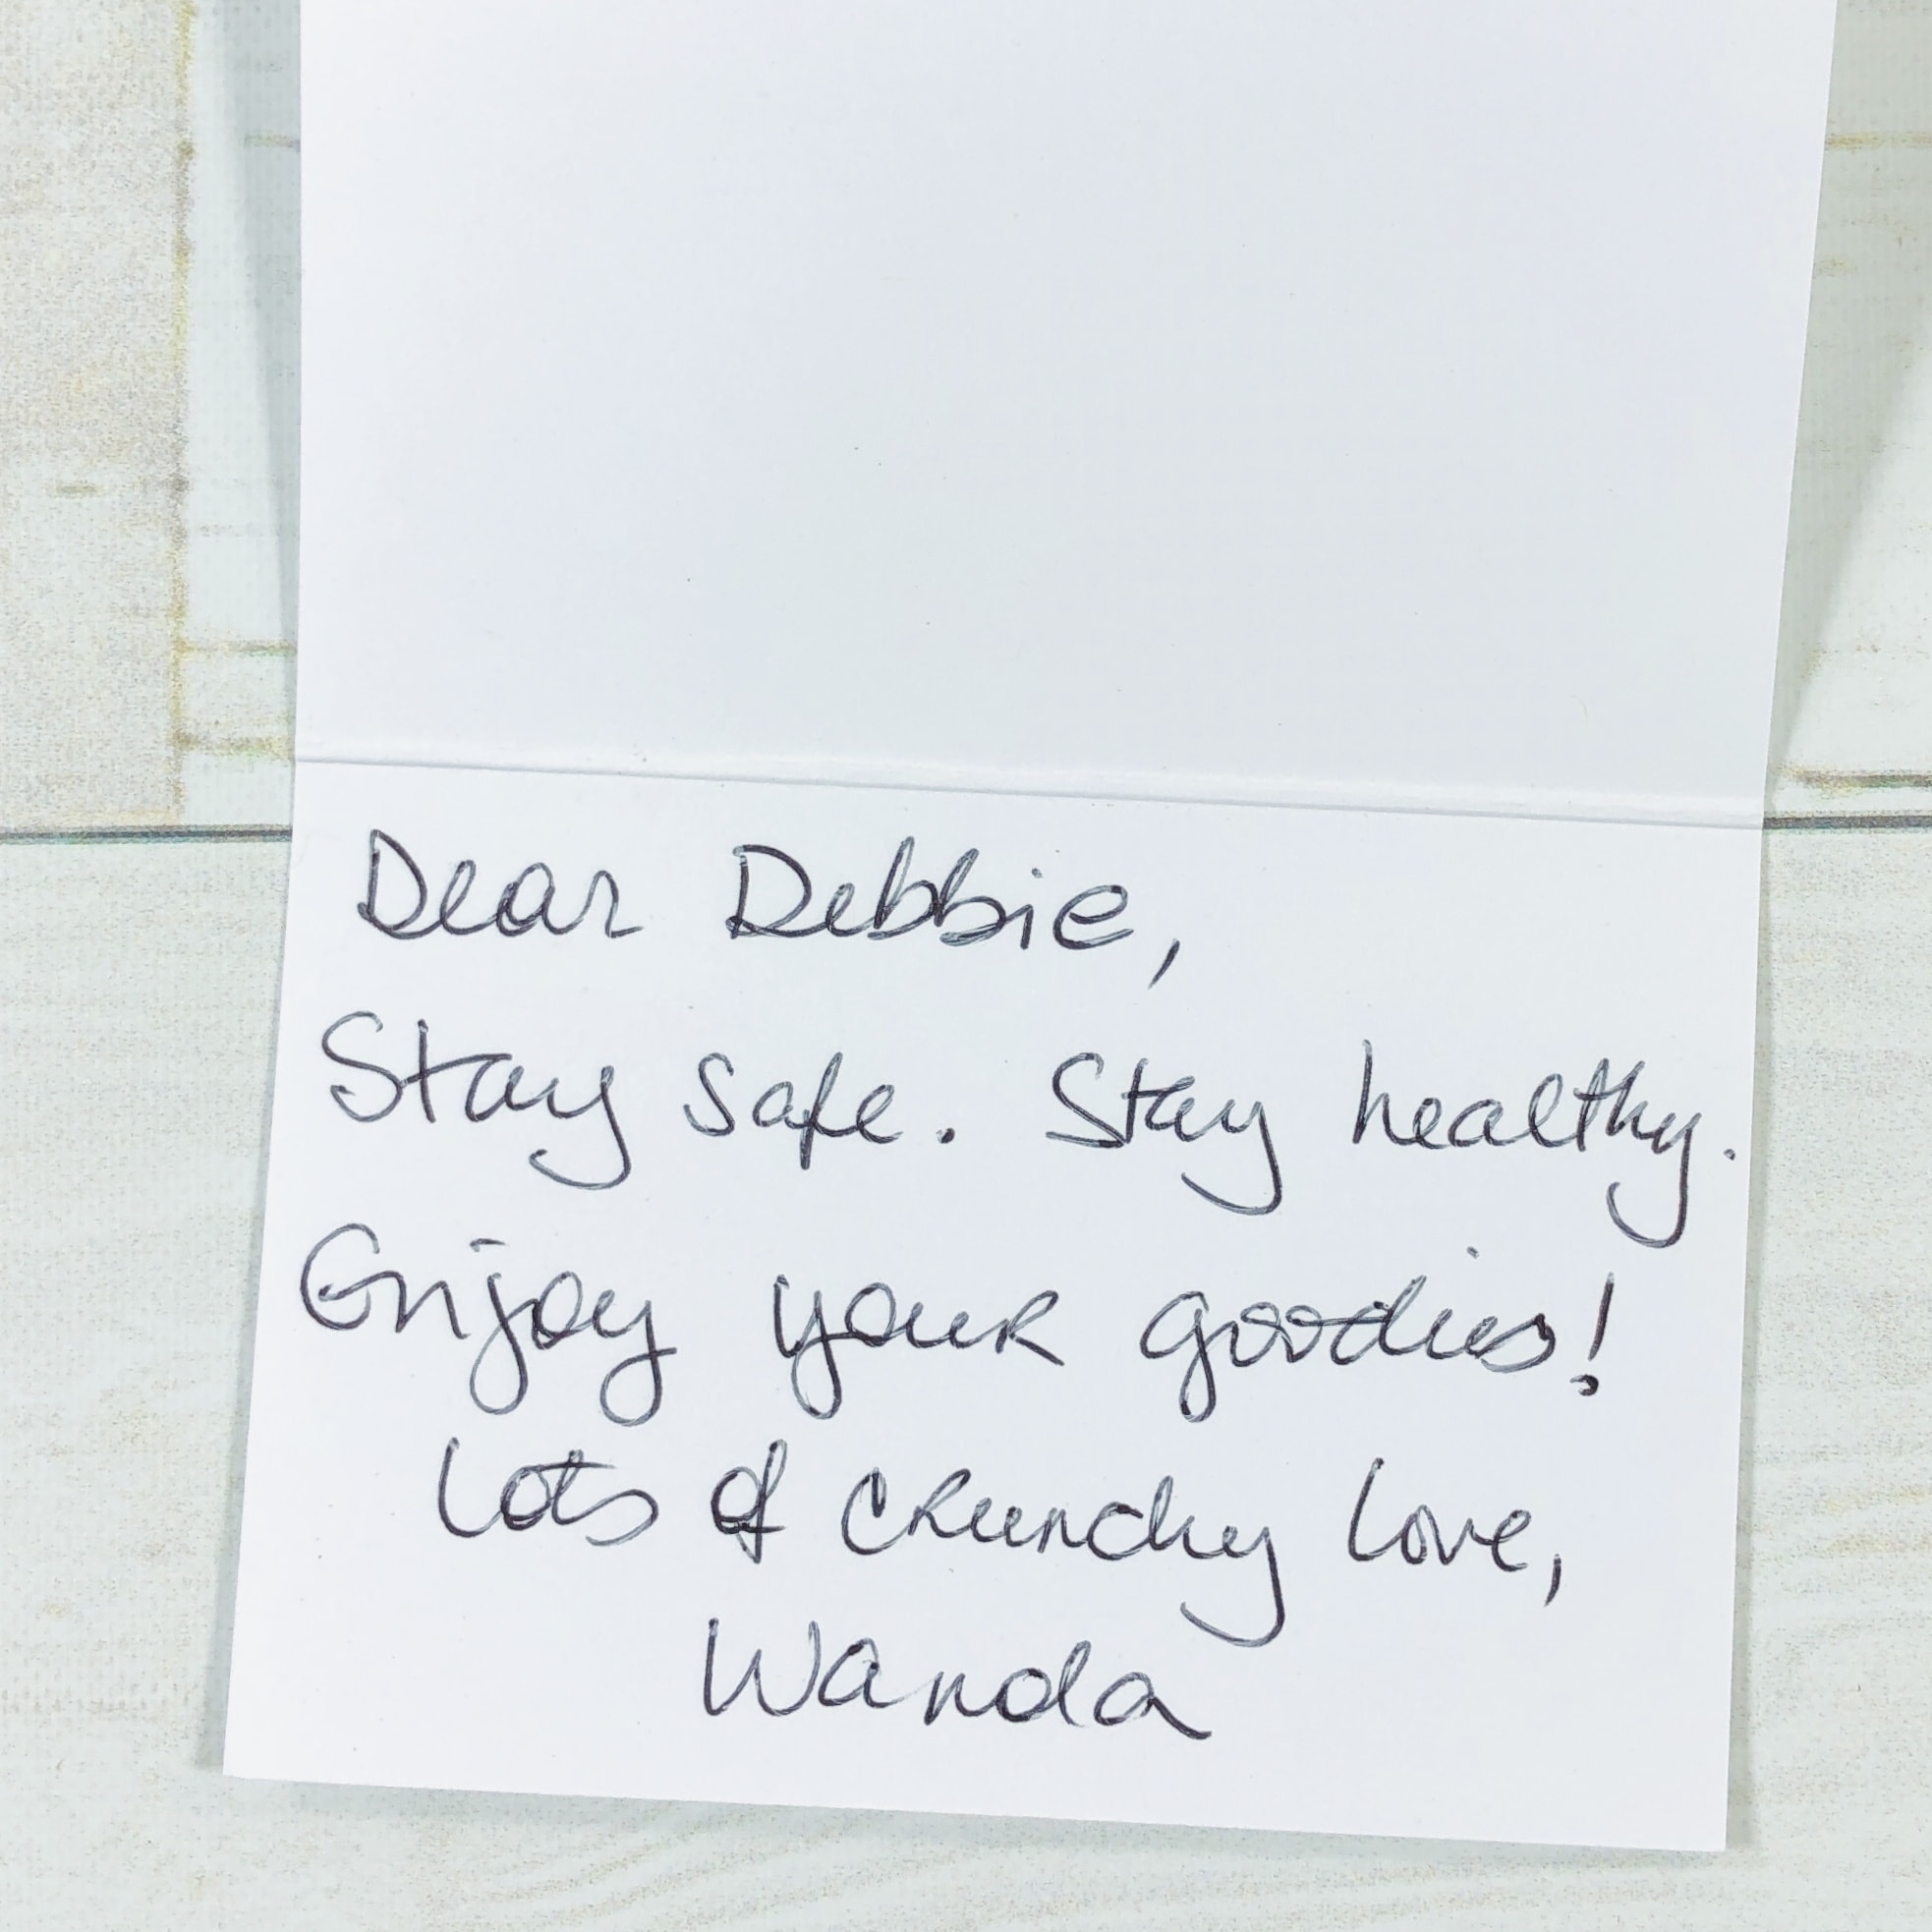 Dear Debbie,
Stay safe. Stay healthy.
Enjoy your goodies!
Lots of crunchy love,
Wanda